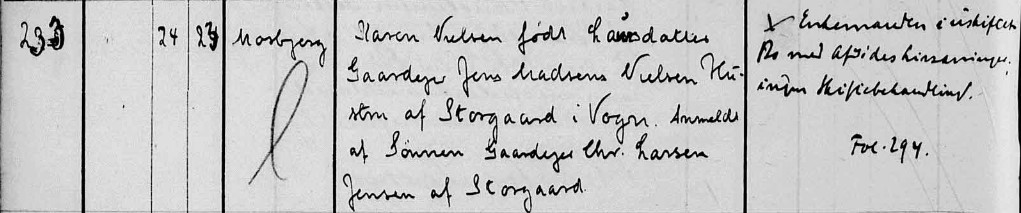 233 24 23 Mosbjerg
Karen Nielsen født Larsdatter
Gaardejer Jens Madsens Nielsen Hu-
stru af Storgaard i Vogn. Anmeldt
af Sønnen Gaardejer Chr. Larsen
Jensen af Storgaard
X Enkemanden i uskiftet
Bo med Afdødes Livsarvinger,
ingen Skiftebehandling.
Fol. 294.